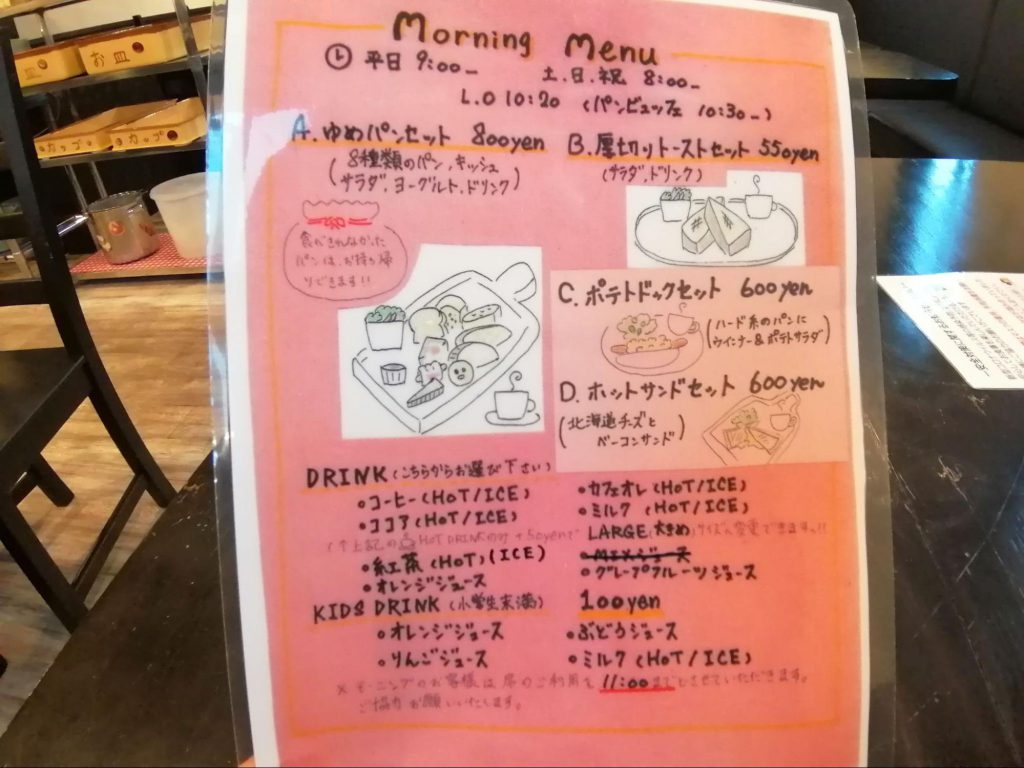 Morning Menu
平日 9:00~ 土.日.祝 8:00~
L.O 10:20 (パンビュッフェ 10:30~)
A. ゆめパンセット 800yen
(8種類のパン、キッシュ
サラダ、ヨーグルト、ドリンク)
食べきれなかった
パンは、お持ち帰
りできます!!
B. 厚切トーストセット 550yen
(サラダ、ドリンク)
C. ポテトドックセット 600yen
(ハード系のパンに
ウインナー&ポテトサラダ)
D. ホットサンドセット 600yen
(北海道チーズと
ベーコンサンド)
DRINK (こちらからお選び下さい)
・コーヒー (HOT/ICE)
・カフェオレ (HOT/ICE)
・ココア (HOT/ICE)
・ミルク (HOT/ICE)
上記の HOT DRINKのみ +50yenで LARGE(大きめ)サイズへ変更できます!!
・紅茶 (HOT) (ICE)
・MIXジュース
・オレンジジュース
・グレープフルーツジュース
KIDS DRINK (小学生未満) 100yen
・オレンジジュース
・ぶどうジュース
・りんごジュース
・ミルク (HOT/ICE)
※モーニングのお客様は席のご利用を 11:00までとさせていただきます。
ご協力お願いいたします。
お皿
カップ